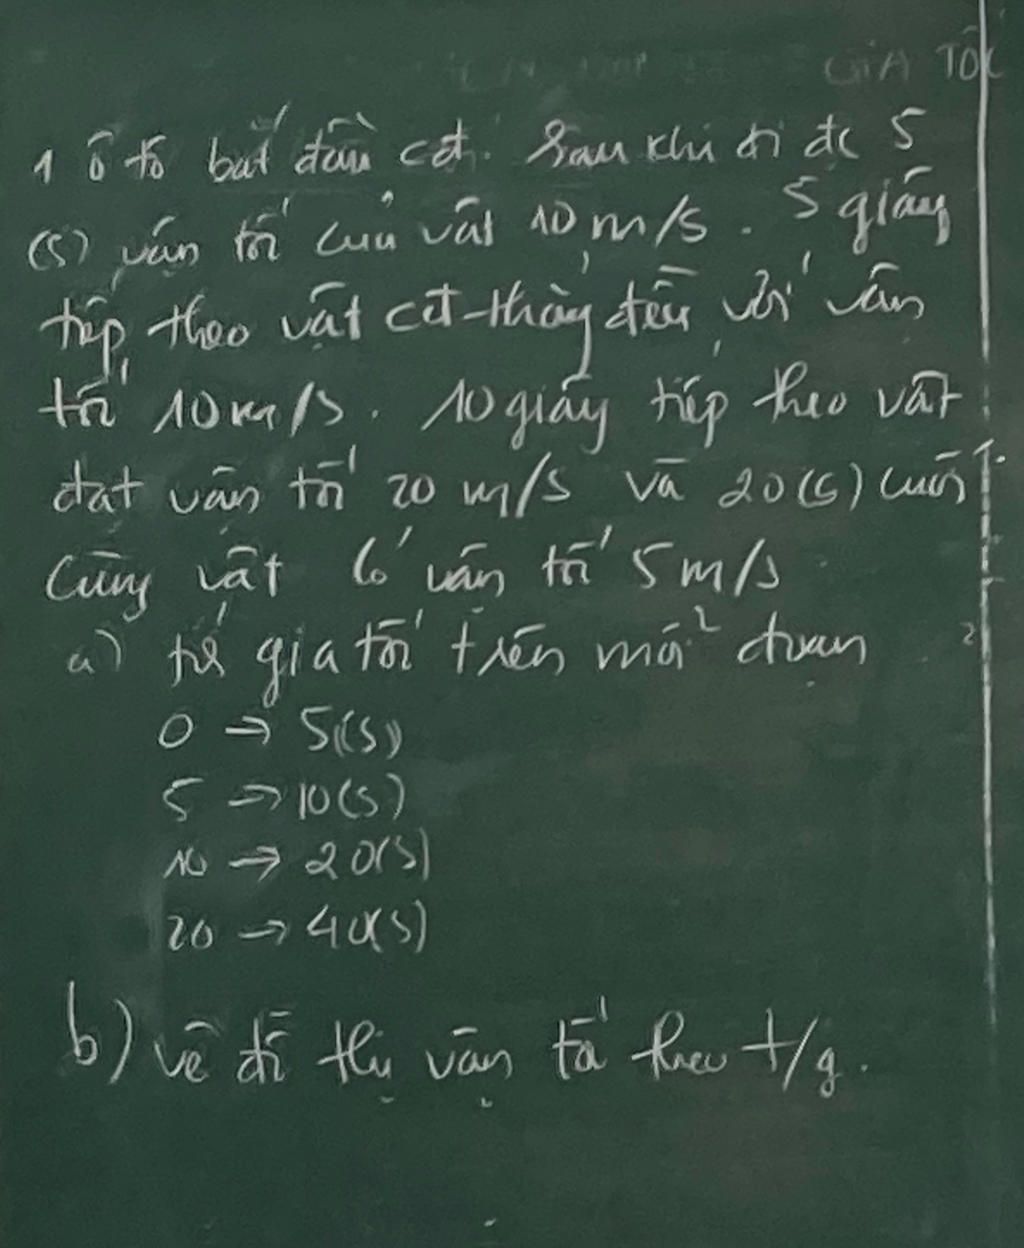 GIA TỐC
1 ô tô bắt đầu cđ. Sau khi đi đc 5
(s) vận tốc của vật 10 m/s. 5 giây
tiếp theo vật cđ thẳng đều với vận
tốc 10m/s. 10 giây tiếp theo vật
đạt vận tốc 20 m/s và 20(s) cuối
cùng vật có vận tốc 5m/s
a) tế gia tốc trên mỗi đoạn
0 → 5(s)
5 → 10(s)
10 → 20(s)
20 → 40(s)
b) vẽ đồ thị vận tốc theo t/g.